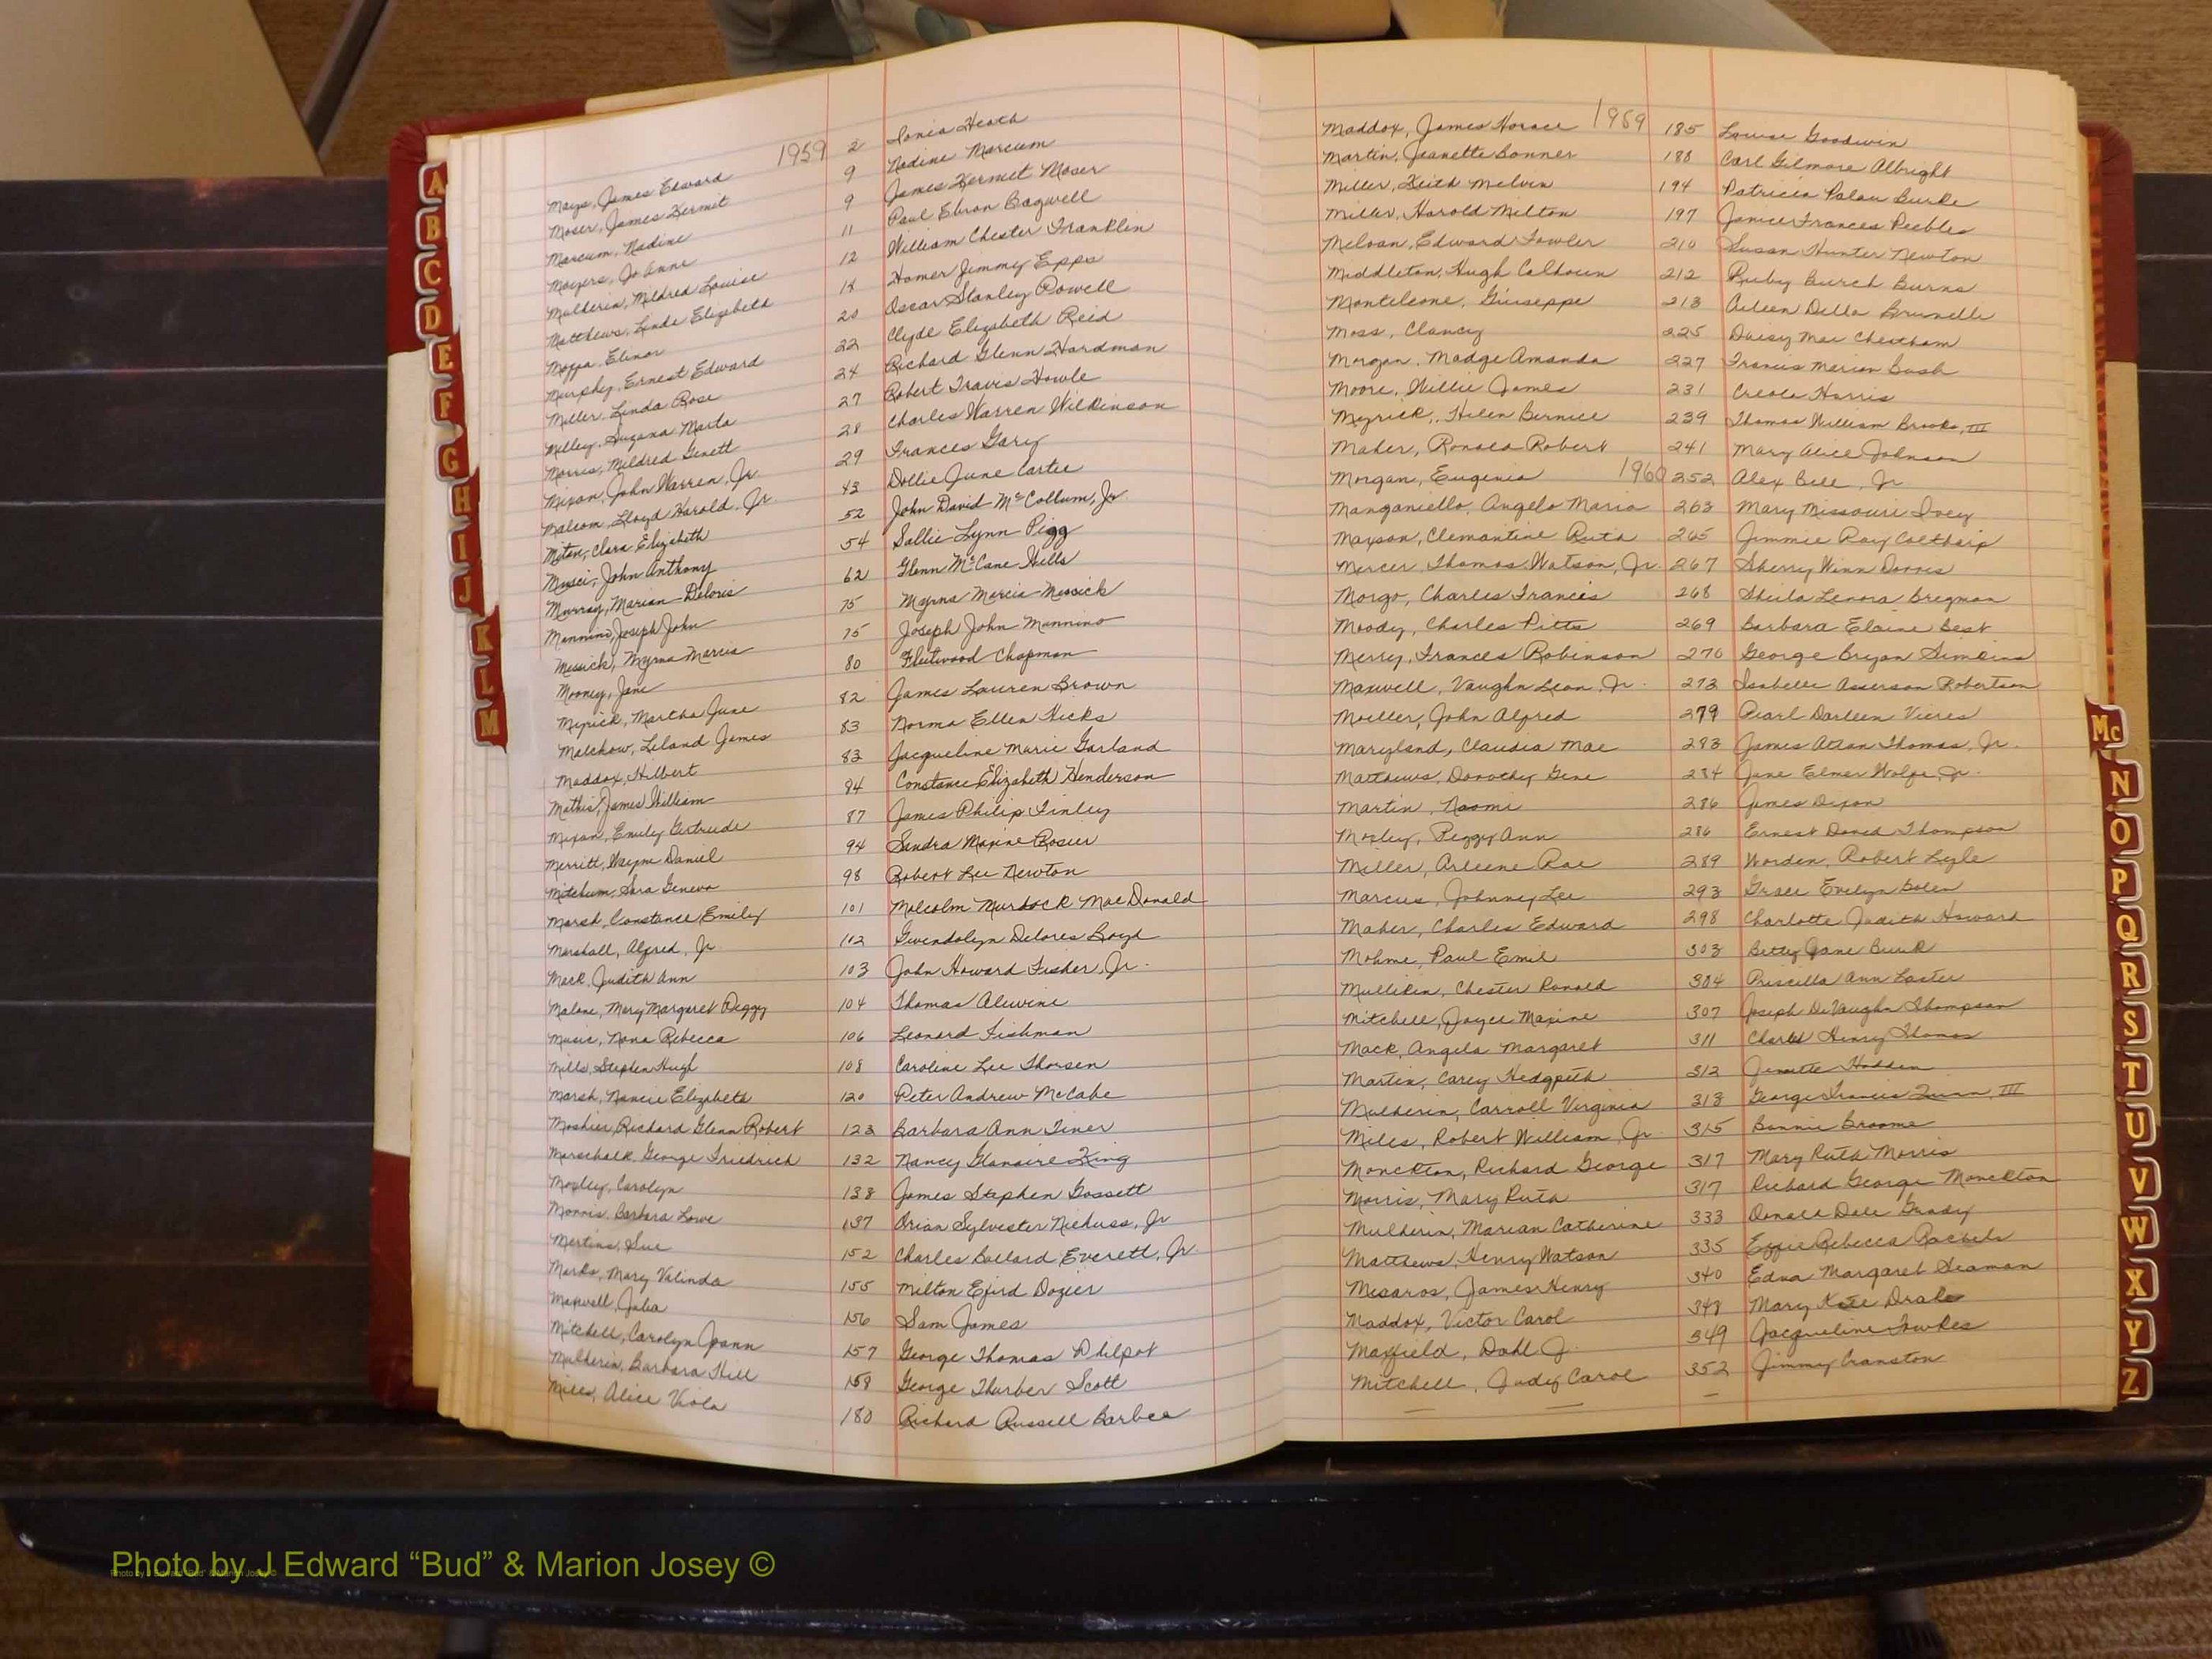 1959
Mays, James Edward 2 Sonia Heath
Moser, James Kermit 9 Nadine Marcum
Marcum, Nadine 9 James Kermit Moser
Moyers, Jo Anne 11 Paul Ebron Bagwell
Mulherin, Mildred Louise 12 William Chester Franklin
Matthews, Linda Elizabeth 18 Homer Jimmy Epps
Elinor 20 Oscar Stanley Powell
Murphy, Ernest Edward 22 Clyde Elizabeth Reid
Miller, Linda Rose 24 Richard Glenn Hardman
Marta 27 Robert Travis Howle
Morris, Mildred Genett 28 Charles Warren Wilkinson
Mixon, John Warren, Jr. 29 Frances Gary
Malcom, Lloyd Harold, Jr. 43 Dollie June Carter
Clara Elizabeth 52 John David McCollum, Jr.
Musci, John Anthony 54 Sallie Lynn Pigg
Murray, Marian Deloris 62 Glenn McCane Hills
Mannino, Joseph John 75 Myrna Marcia Messick
Messick, Myrna Marcia 75 Joseph John Mannino
Mooney, Jane 80 Fleetwood Chapman
Myrick, Martha June 82 James Lauren Brown
Malchow, Leland James 83 Norma Ellen Hicks
Maddox, Hilbert 83 Jacqueline Marie Garland
Mathis, James William 84 Constance Elizabeth Henderson
Mixon, Emily Gertrude 87 James Philip Finley
Merritt, Wayne Daniel 94 Sandra Maxine Rosier
Mitchum, Sara Geneva 98 Robert Lee Newton
Marsh, Constance Emily 101 Malcolm Murdock MacDonald
Marshall, Alfred, Jr. 102 Gwendolyn Delores Boyd
Mack, Judith Ann 103 John Howard Fisher, Jr.
Malone, Mary Margaret Peggy 104 Thomas Alewine
Music, Nona Rebecca 106 Leonard Fishman
Mills, Stephen Hugh 108 Caroline Lee Thorsen
Marsh, Nancie Elizabeth 120 Peter Andrew McCabe
Moshier, Richard Glenn Robert 123 Barbara Ann Tiner
Marschalk, George Friedrich 132 Nancy King
Mobley, Carolyn 133 James Stephen Gossett
Morris, Barbara Lowe 137 Orian Sylvester Niehuss, Jr
Mertins, Sue 152 Charles Ballard Everett, Jr.
Marks, Mary Valinda 155 Milton Efird Dozier
Maxwell, Julia 156 Sam James
Mitchell, Carolyn Joann 157 George Thomas Philpot
Mulherin, Barbara Hill 158 George Thurber Scott
Mills, Alice Viola 180 Richard Russell Barbee
Maddox, James Horace 1959 185 Louise Goodwin
Martin, Jeanette Bonner 188 Carl Gilmore Albright
Miller, Keith Melvin 194 Patricia Palau Burke
Miller, Harold Milton 197 Janice Frances Peebles
Meloan, Edward Fowler 210 Susan Hunter Newton
Middleton, Hugh Calhoun 212 Ruby Burch Burns
Monteleone, Giuseppe 213 Aileen Della Brunelle
Moss, Clancy 225 Daisy Mae Cheatham
Morgan, Madge Amanda 227 Francis Marion Bush
Moore, Willie James 231 Creola Harris
Myrick, Helen Bernice 239 Thomas William Brooks, III
Maher, Ronald Robert 241 Mary Alice Johnson
Morgan, Eugenia 1960 252 Alex Bell, Jr
Manganiello, Angelo Mario 263 Mary Missouri Ivey
Mayson, Clemantine Ruth 265 Jimmie Ray Coltharp
Mercer, Thomas Watson, Jr. 267 Sherry Winn Dorris
Morgo, Charles Francis 268 Sheila Lenora Bregman
Moody, Charles Pitts 269 Barbara Elaine Best
Merry, Frances Robinson 270 George Bryan Simkins
Maxwell, Vaughn Leon, Jr. 273 Isabelle Robertson
Moeller, John Alfred 279 Pearl Darleen Vieres
Maryland, Claudia Mae 283 James Thomas, Jr.
Matthews, Dorothy Gene 284 Jane Elmer Wolfe, Jr.
Martin, Naomi 286 James Dixon
Mosley, Peggy Ann 286 Ernest David Thompson
Miller, Arleene Rae 289 Worden, Robert Lyle
Marcus, Johnny Lee 293 Grace Evelyn Bolen
Maher, Charles Edward 298 Charlotte Judith Howard
Mohme, Paul Emil 303 Betty Jane Bunk
Mulliken, Chester Ronald 304 Priscilla Ann Laster
Mitchell, Joyce Maxine 307 Joseph DeVaughn Thompson
Mack, Angela Margaret 311 Charles Henry Thomas
Martin, Carey Hedgpeth 312 Jenette Hadden
Mulherin, Carroll Virginia 313 George Francis III
Miles, Robert William, Jr 315 Bonnie Broome
Monckton, Richard George 317 Mary Ruth Morris
Morris, Mary Ruth 317 Richard George Monckton
Mulherin, Marian Catherine 333 Donald Dale Gundy
Matthews, Henry Watson 335 Effie Rebecca Rachels
Mesaros, James Henry 340 Edna Margaret Seaman
Maddox, Victor Carol 348 Mary Kate Drake
Maxfield, Dahl J. 349 Jacqueline Fowkes
Mitchell, Judy Carol 352 Jimmy Cranston
A
B
C
D
E
F
G
H
I
J
K
L
M
Mc
N
O
P
Q
R
S
T
U
V
W
X
Y
Z
Photo by J Edward “Bud” & Marion Josey ©
Photo by J Edward "Bud" & Marion Josey ©